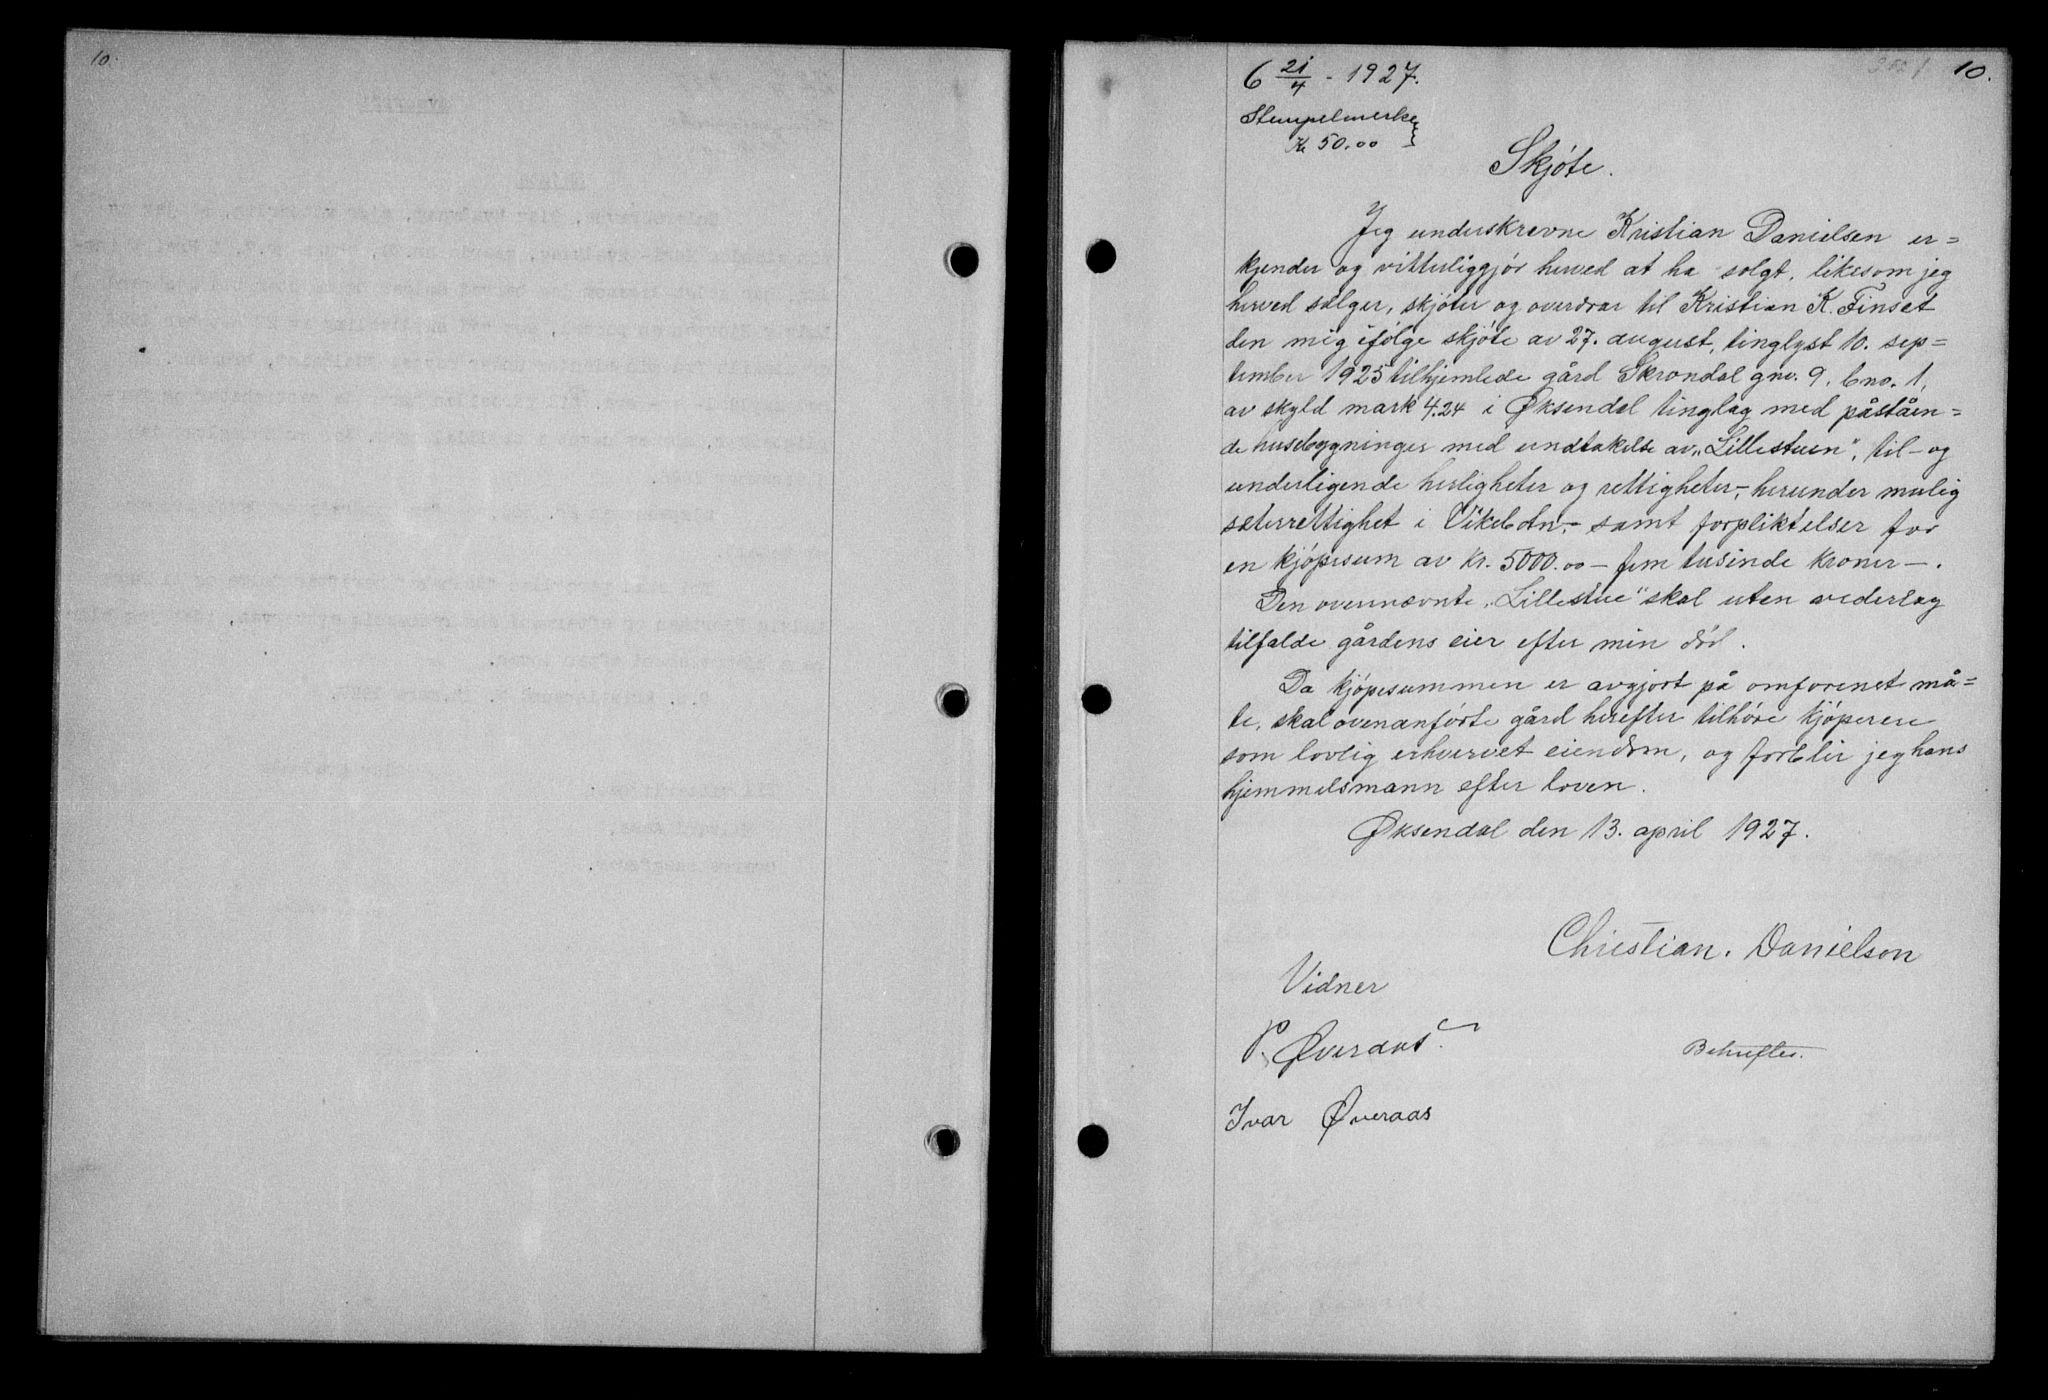 10.
10.
6 21/4 - 1927.
Stempelmerke
Kr 50.00
Skjøte.
Jeg underskrevne Kristian Danielsen er=
kjender og vitterliggjør herved at ha solgt, likesom jeg
herved sælger, skjøter og overdrar til Kristian K. Finset
den mig ifølge skjøte av 27. august, tinglyst 10. sep=
tember 1925 tilhjemlede gård Skrondal gno. 9, bno. 1,
av skyld mark 4.24 i Øksendal tinglag med påståen=
de husebygninger med undtakelse av „Lillestuen", til- og
underligende herligheter og rettigheter,- herunder mulig
sæterrettighet i Vikebotn,- samt forpliktelser for
en kjøpesum av kr. 5000.00 - fem tusinde kroner - .
Den ovennævnte „Lillestue" skal uten vederlag
tilfalde gårdens eier efter min død.
Da kjøpesummen er avgjort på omforenet må=
te, skal ovenanførte gård herefter tilhøre kjøperen
som lovlig erhvervet eiendom, og forblir jeg hans
hjemmelsmann efter loven.
Øksendal den 13. april 1927.
Christian. Danielson
Vidner
P. Øveraas.
Bekræftes.
Ivar Øveraas